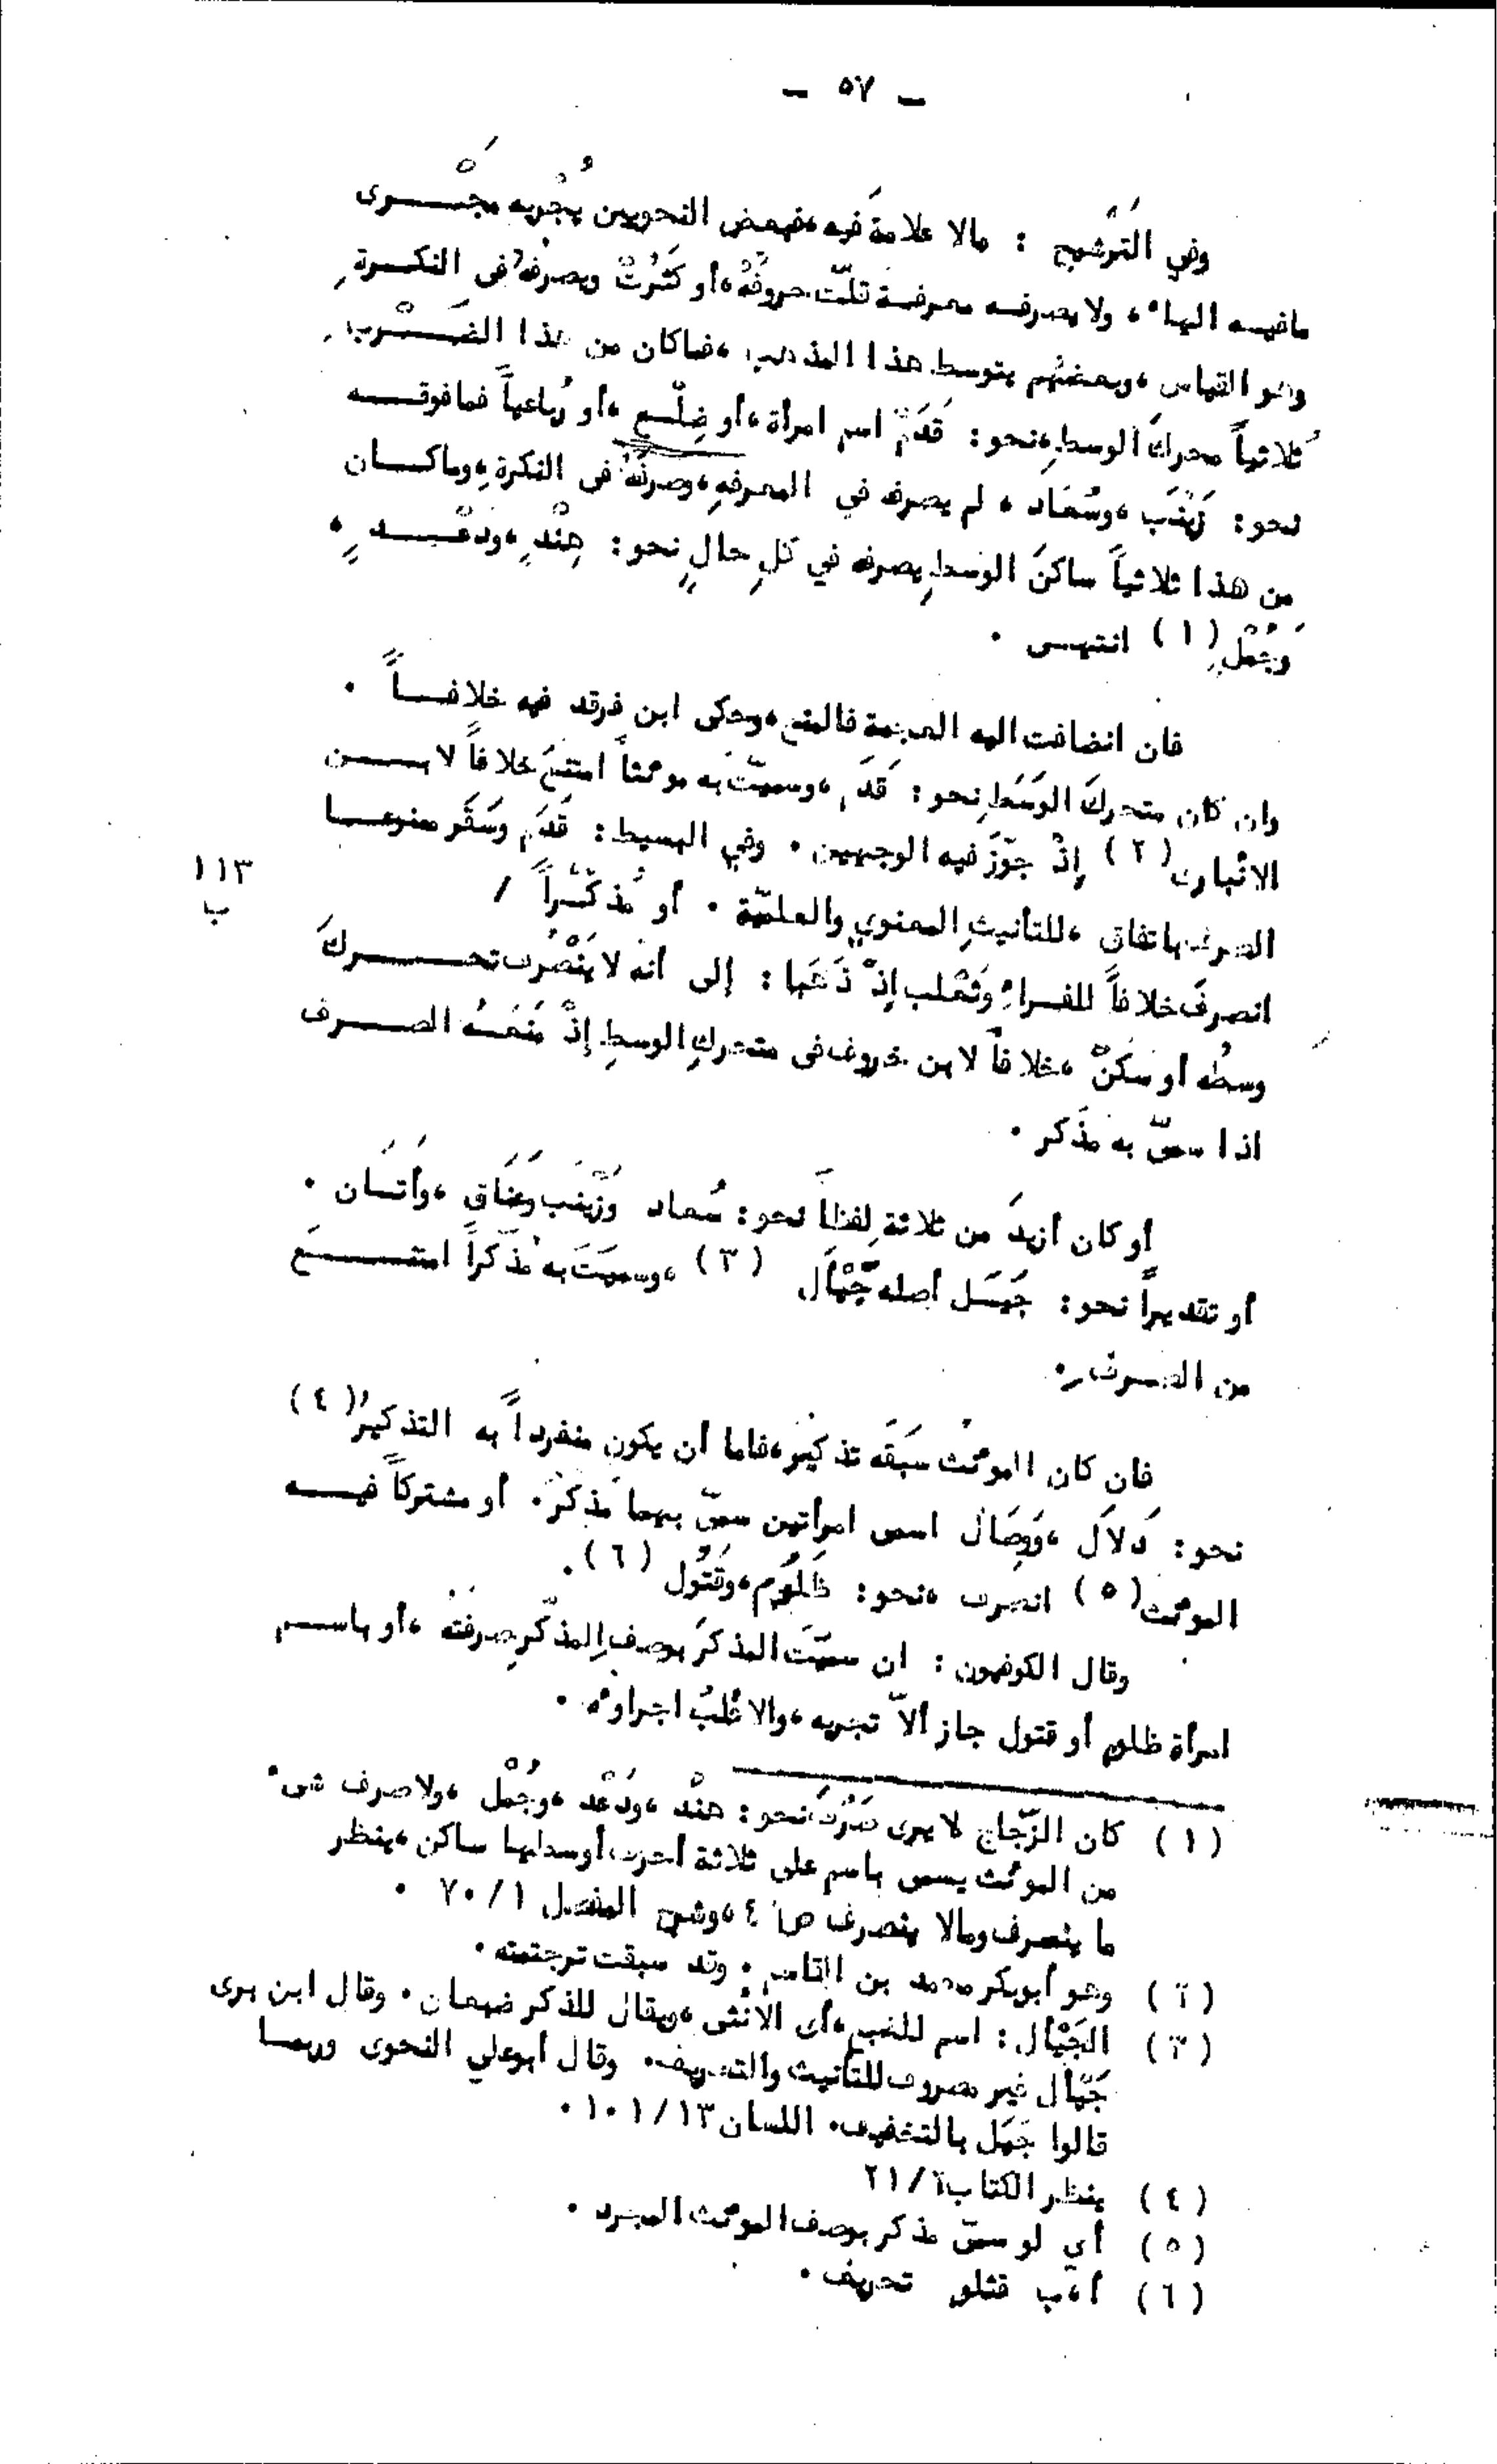 - ٥٧ -
وفي التَرشيح : مالا علامةَ فيه ،فبعض النحويين يُجْريه مجْرى
مافيه الهاء ، ولا يصرفه معرفة قلّت حروفُهُ ،أو كَثُرتْ ويصرفُه فى النكرةِ
وهو القياس ،وبعضهم يتوسط هذا المذهب ،فماكان من هذا الضَرْبِ
ثُلاثياً محركَ الوسطِ ،نحو : قَدَمْ اسم امرأة ،أو ضِلَع ،أو رُباعياً فمافوقه
نحو : زَيْنَب ،وسُعَاد ، لم يصرفه في المعرفةِ ،وصرفَهُ فى النكرةِ ،وماكان
من هذا ثلاثياً ساكنَ الوسطِ يصرفه في كلِ حالٍ نحو : هِنْدٍ ،ودَعْدٍ ،
وَجُمْلٍ (١) انتهى .
فان انضافت اليه العجمة فالمنع ،وحكى ابن فرقد فيه خلافاً .
وان كان متحركَ الوَسَطِ نحو : قَدَم ،وسميّتَ به مؤنثاً امتنعَ خلافاً لابن
الانْبارى (٢) إذْ جوّزَ فيه الوجهين . وفي البسيط : قَدَم وَسَقَر ممنوعا
الصرف باتفاق ،للتأنيثِ المعنوي والعلميّة . أو مُذكّراً /
١١٣
ب
انصرفَ خلافاً للفراءِ وَثَعْلب إذْ ذَهَبا : إلى أنه لا يَنْصرُف تحركَ
وسطُه أو سَكَنّ ،خلافاً لابن خروف فى متحركِ الوسطِ إذْ مَنَعَهُ الصرف
اذا سمىّ به مُذَكر .
أو كان أزيدَ من ثلاثةِ لفظاً نحو : سُعاد وَزَينَب وعَنَاق ،وأتَان .
أو تقديراً نحو : جَيَل أصله جَيْأل (٣) ،وسميَّتَ به مُذَكراً امتنعَ
من الصرفِ .
فان كان المؤنث سَبَقَه تذكيرُ ،فاما أن يكون منفرداً به التذكيرُ (٤)
نحو : دَلاَل ،وَوِصَال اسمى امرأتين سمىّ بهما مُذكرَ . أو مشتركاً فيه
المؤنث (٥) انصرف ،نحو : ظَلُوم ،وقَتُول (٦) .
وقال الكوفيون : ان سميّتَ المذكرَ بوصفِ المذكّرِ صرفتَه ،أو باسم
امرأة ظلوم أو قتول جاز ألاّ تجريه ،والاغْلبُ اجراؤه .
(١) كان الزّجاج لا يرى صَرْفَ نحو : هنْد ،ودَعْد ،وجُمْل ،ولا صرف شىء
من المؤنث يسمى باسم على ثلاثة أحرف أوسطها ساكن ،ينظر
ما ينصرف ومالا ينصرف ص ٤ ،وشرح المفصل ٧٠/١ .
(٢) وهو أبوبكر محمد بن القاسم . وقد سبقت ترجمته .
(٣) الجَيْأل : اسم للضبع ،أى الأنْثى ،ويقال للذكر ضبعان . وقال ابن برى
جَيْأل غير مصروف للتأنيث والتعريف . وقال أبوعلي النحوى وربما
قالوا جَيَل بالتخفيف . اللسان ١٠١/١٣ .
(٤) ينظر الكتاب ٢١/٢
(٥) أي لو سمىّ مذكر بوصف المؤنث المجرد .
(٦) أ ،ب قثلو تحريف .